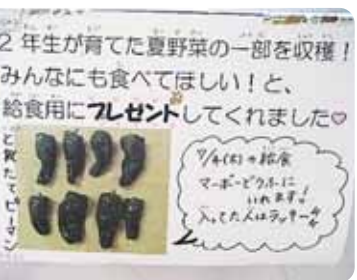 2年生が育てた夏野菜の一部を収穫!
みんなにも食べてほしい!と、
給食用にプレゼントしてくれました♡
とれたてピーマン
7/4(木)の給食
マーボーどうふに
いれます!
入ってた人はラッキー